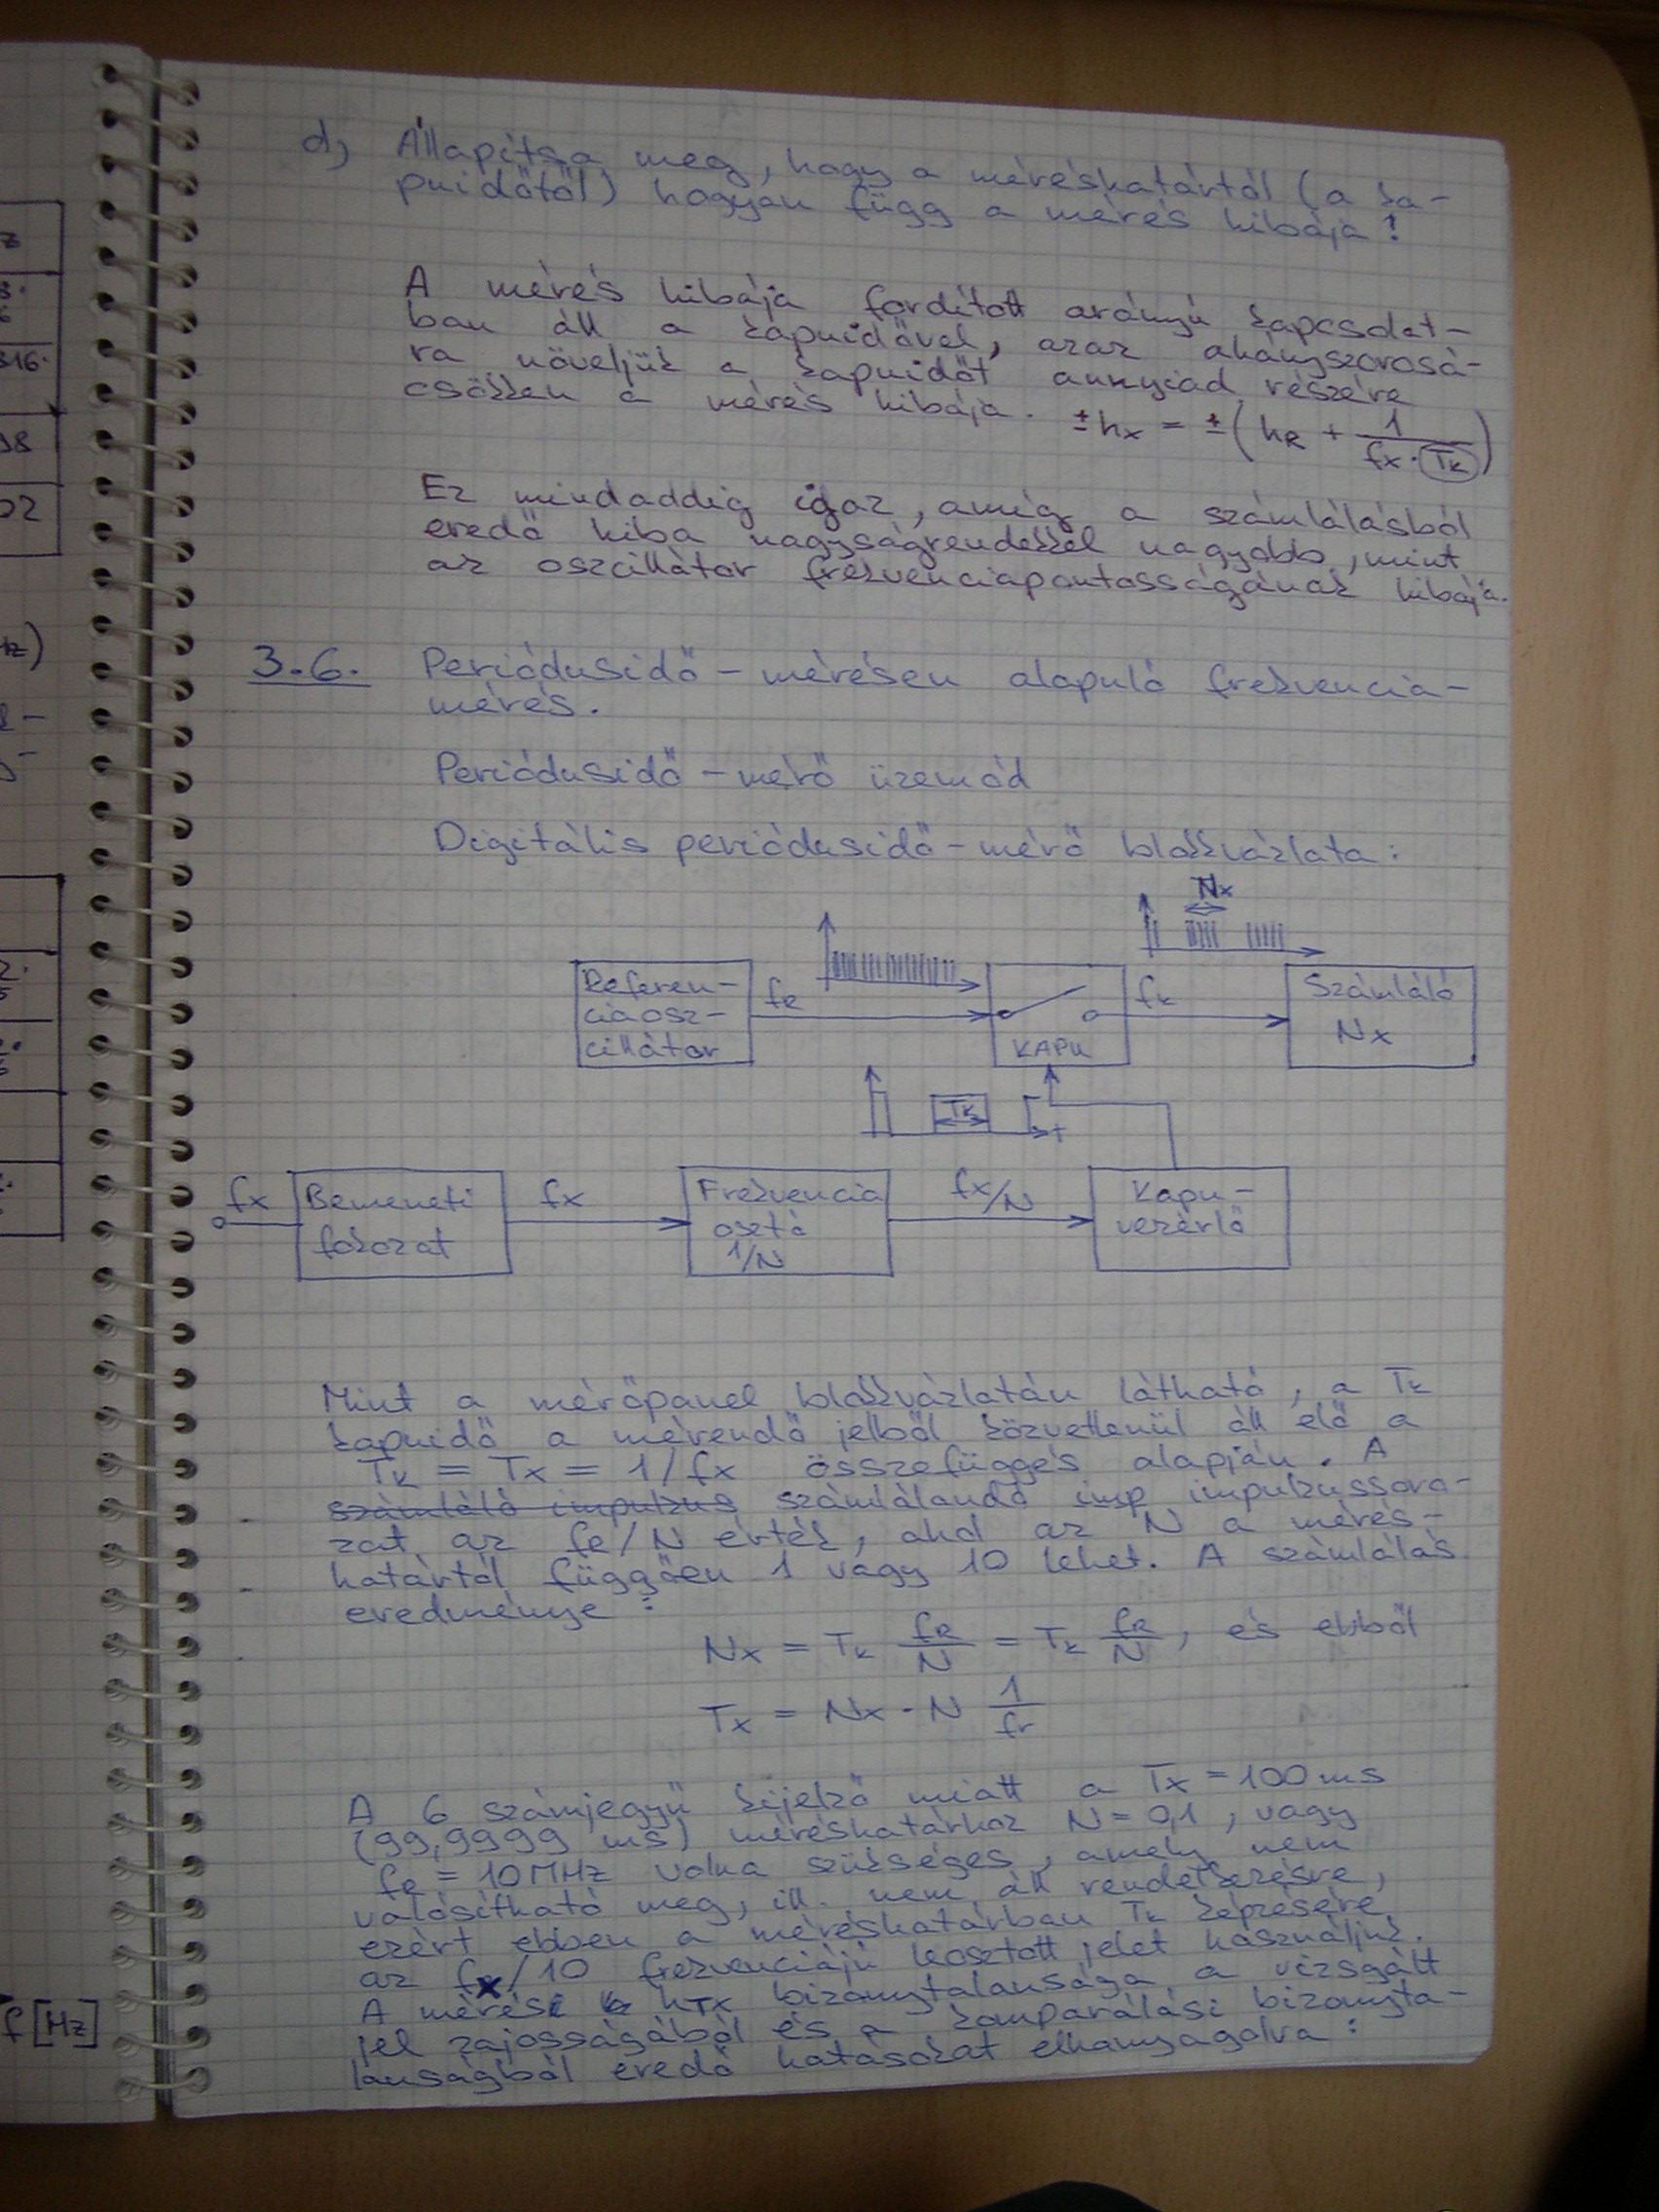 d, Állapítsa meg, hogy a méréshatártól (a ka-
puidőtől) hogyan függ a mérés hibája!
A mérés hibája fordított arányú kapcsolat-
ban áll a kapuidővel, azaz ahányszorosá-
ra növeljük a kapuidőt annyiad részére
csökken a mérés hibája. ±hx = ±(hR + 1/(fx·Tk))
Ez mindaddig igaz, amíg a számlálásból
eredő hiba nagyságrendekkel nagyobb, mint
az oszcillátor frekvenciapontosságának hibája.
3.6. Periódusidő-mérésen alapuló frekvencia-
mérés.
Periódusidő-mérő üzemód
Digitális periódusidő-mérő blokkvázlata:
Nx
Referen-
ciaosz-
cillátor
fR
KAPU
fk
Számláló
Nx
Tk
t
fx
Bemeneti
fokozat
fx
Frekvencia
osztó
1/N
fx/N
Kapu-
vezérlő
Mint a mérőpanel blokkvázlatán látható, a Tk
kapuidő a mérendő jelből közvetlenül áll elő a
Tk = Tx = 1/fx összefüggés alapján. A
számláló impulzus számlálandó imp impulzussoro-
zat az fR/N érték, ahol az N a mérés-
határtól függően 1 vagy 10 lehet. A számlálás
eredménye:
Nx = Tk fR/N = Tk fR/N, és ebből
Tx = Nx · N 1/fr
A 6 számjegyű kijelző miatt a Tx = 100 ms
(99,9999 ms) méréshatárhoz N = 0,1, vagy
fR = 10 MHz volna szükséges, amely nem
valósítható meg, ill. nem áll rendelkezésre,
ezért ebben a méréshatárban Tk képzésére
az fx/10 frekvenciájú leosztott jelet használjuk.
A mérés hTx bizonytalansága a vizsgált
jel zajosságából és a komparálási bizonyta-
lanságból eredő hatásokat elhanyagolva:
f [Hz]